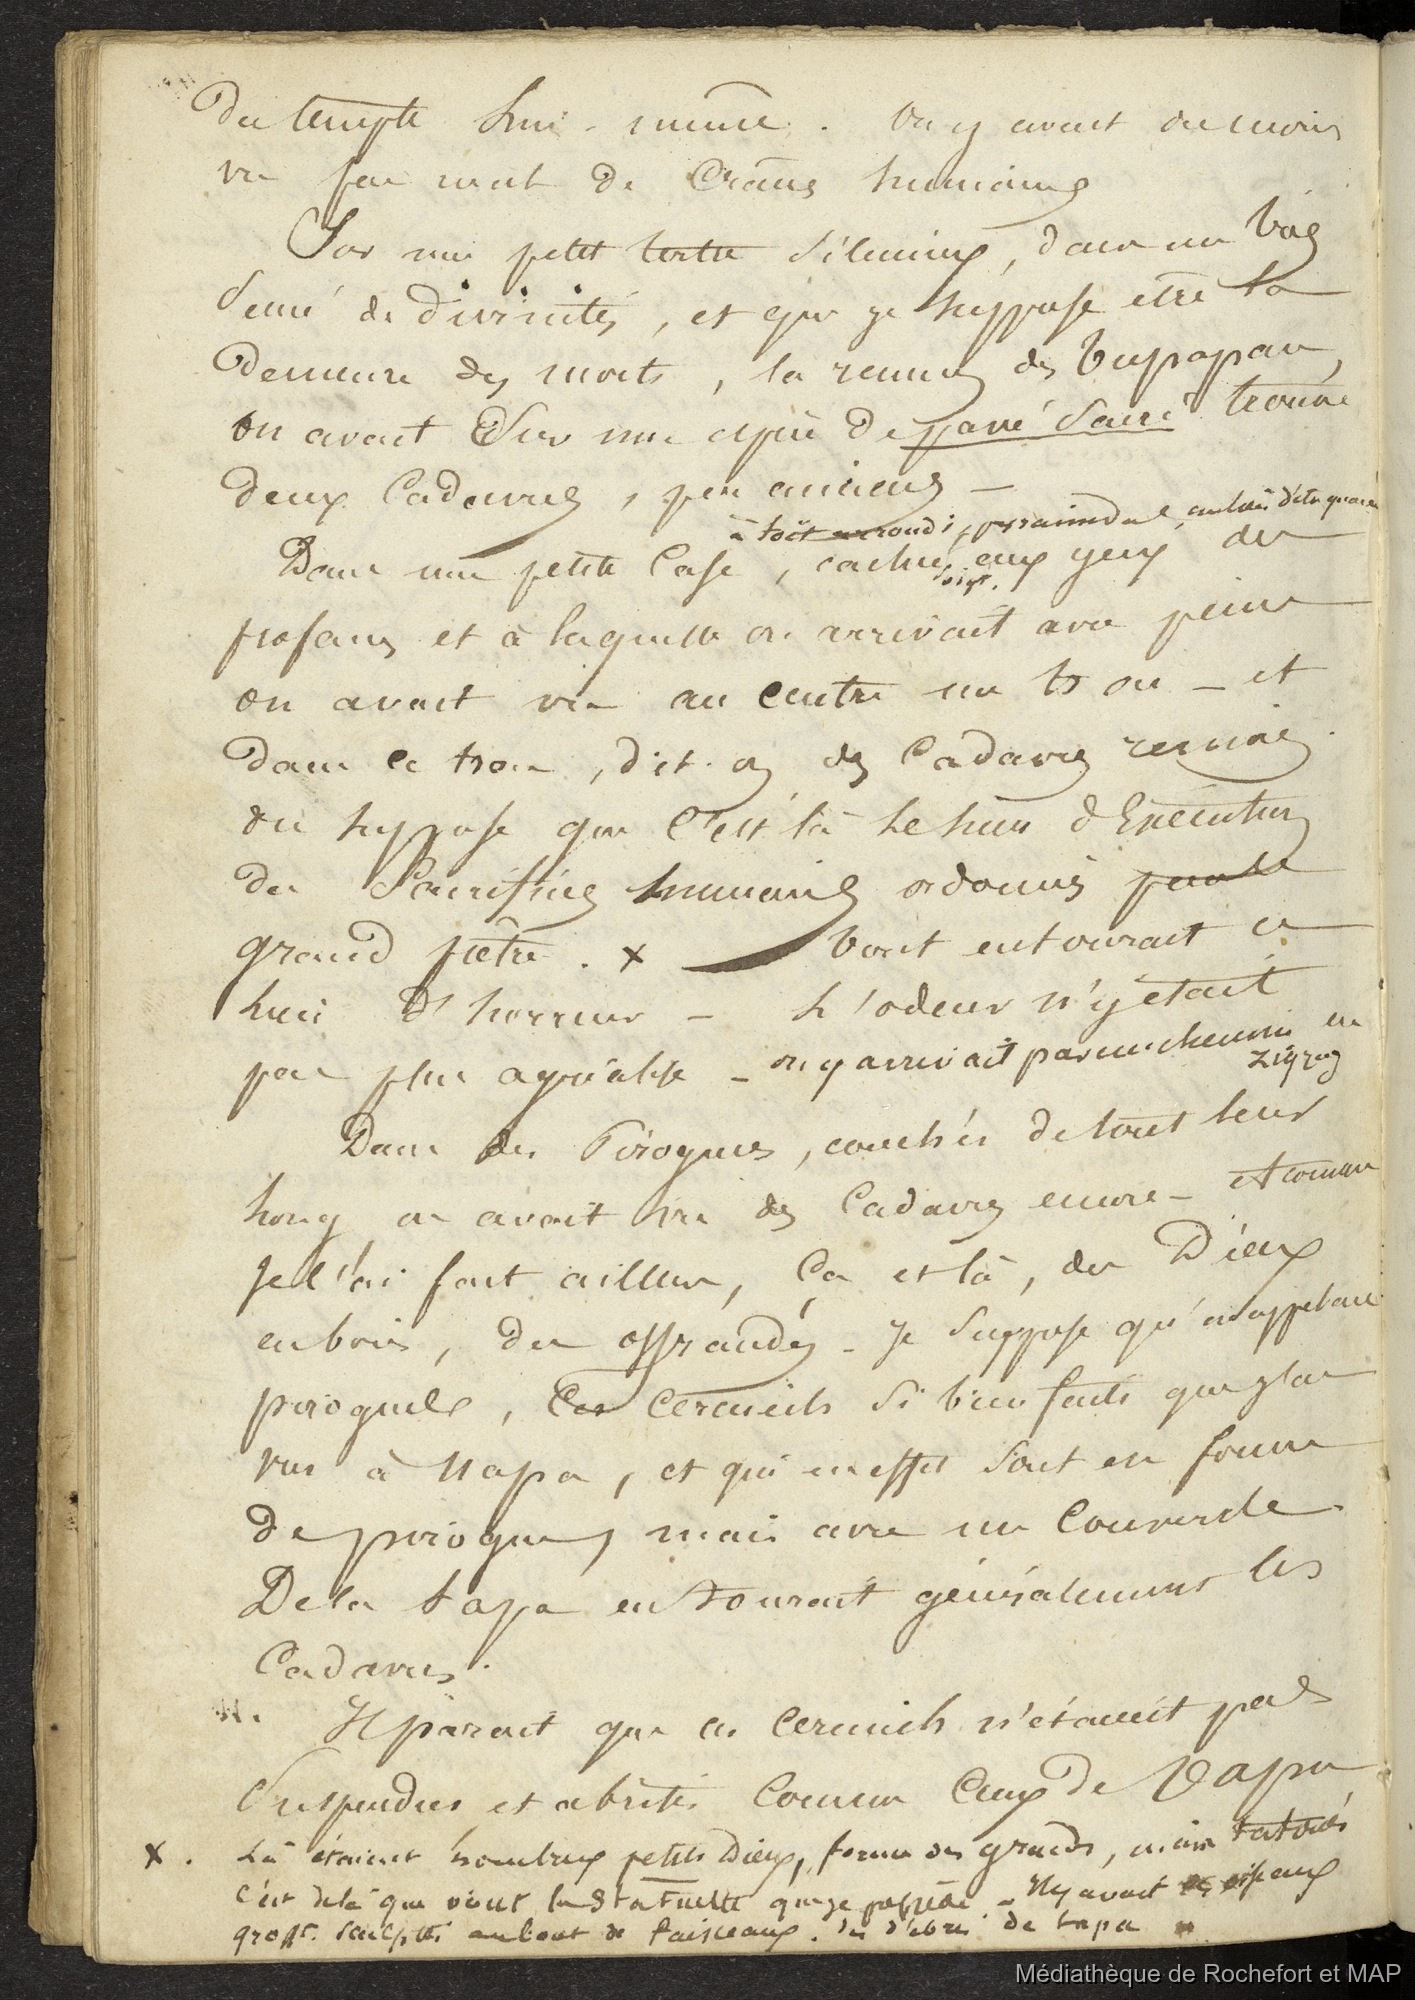 du temple lui-même. On y avait du moins
vu pas mal de crânes humains
Sur un petit tertre silencieux, dans un bois
semé de divinités, et que je suppose être la
demeure des morts, la réunion des Tupapau,
on avait sur une espèce de pavé sacré trouvé
deux cadavres, peu anciens —
à toit arrondi, pyramidal, au lieu d'être quarré
Dans une petite case, cachée soigt. aux yeux des
profanes et à laquelle on arrivait avec peine
on avait vu au centre un trou — et
dans ce trou, dit-on des cadavres
on suppose que c'est là le lieu d'Exécution
des Sacrifices humains ordonnés par le
grand prêtre. x — Tout entourait ce
lieu d'horreur — L'odeur n'y était
pas plus agréable — on y arrivait par un chemin en
zigzag
Dans des Pirogues, couchés de tout leur
long on avait vu des cadavres encore — et comme
je l'ai fait ailleurs, ça et là, des Dieux
en bois, des offrandes — Je suppose qu'on appelait
pirogues, ces cercueils si bien faits que j'ai
vus à Uapa, et qui en effet sont en forme
de pirogues, mais avec un couvercle
De la tapa entourait généralement les
cadavres.
Il parait que ces cercueils n'étaient pas
suspendus et abrités comme ceux de Vapu
x. Là étaient nombreux petits Dieux, forme des grands, moins tatoués
c'est de là que vient la statuette que je possède. — Il y avait des oiseaux
grosst. sculptés au bout de faisceaux. des débris de tapa